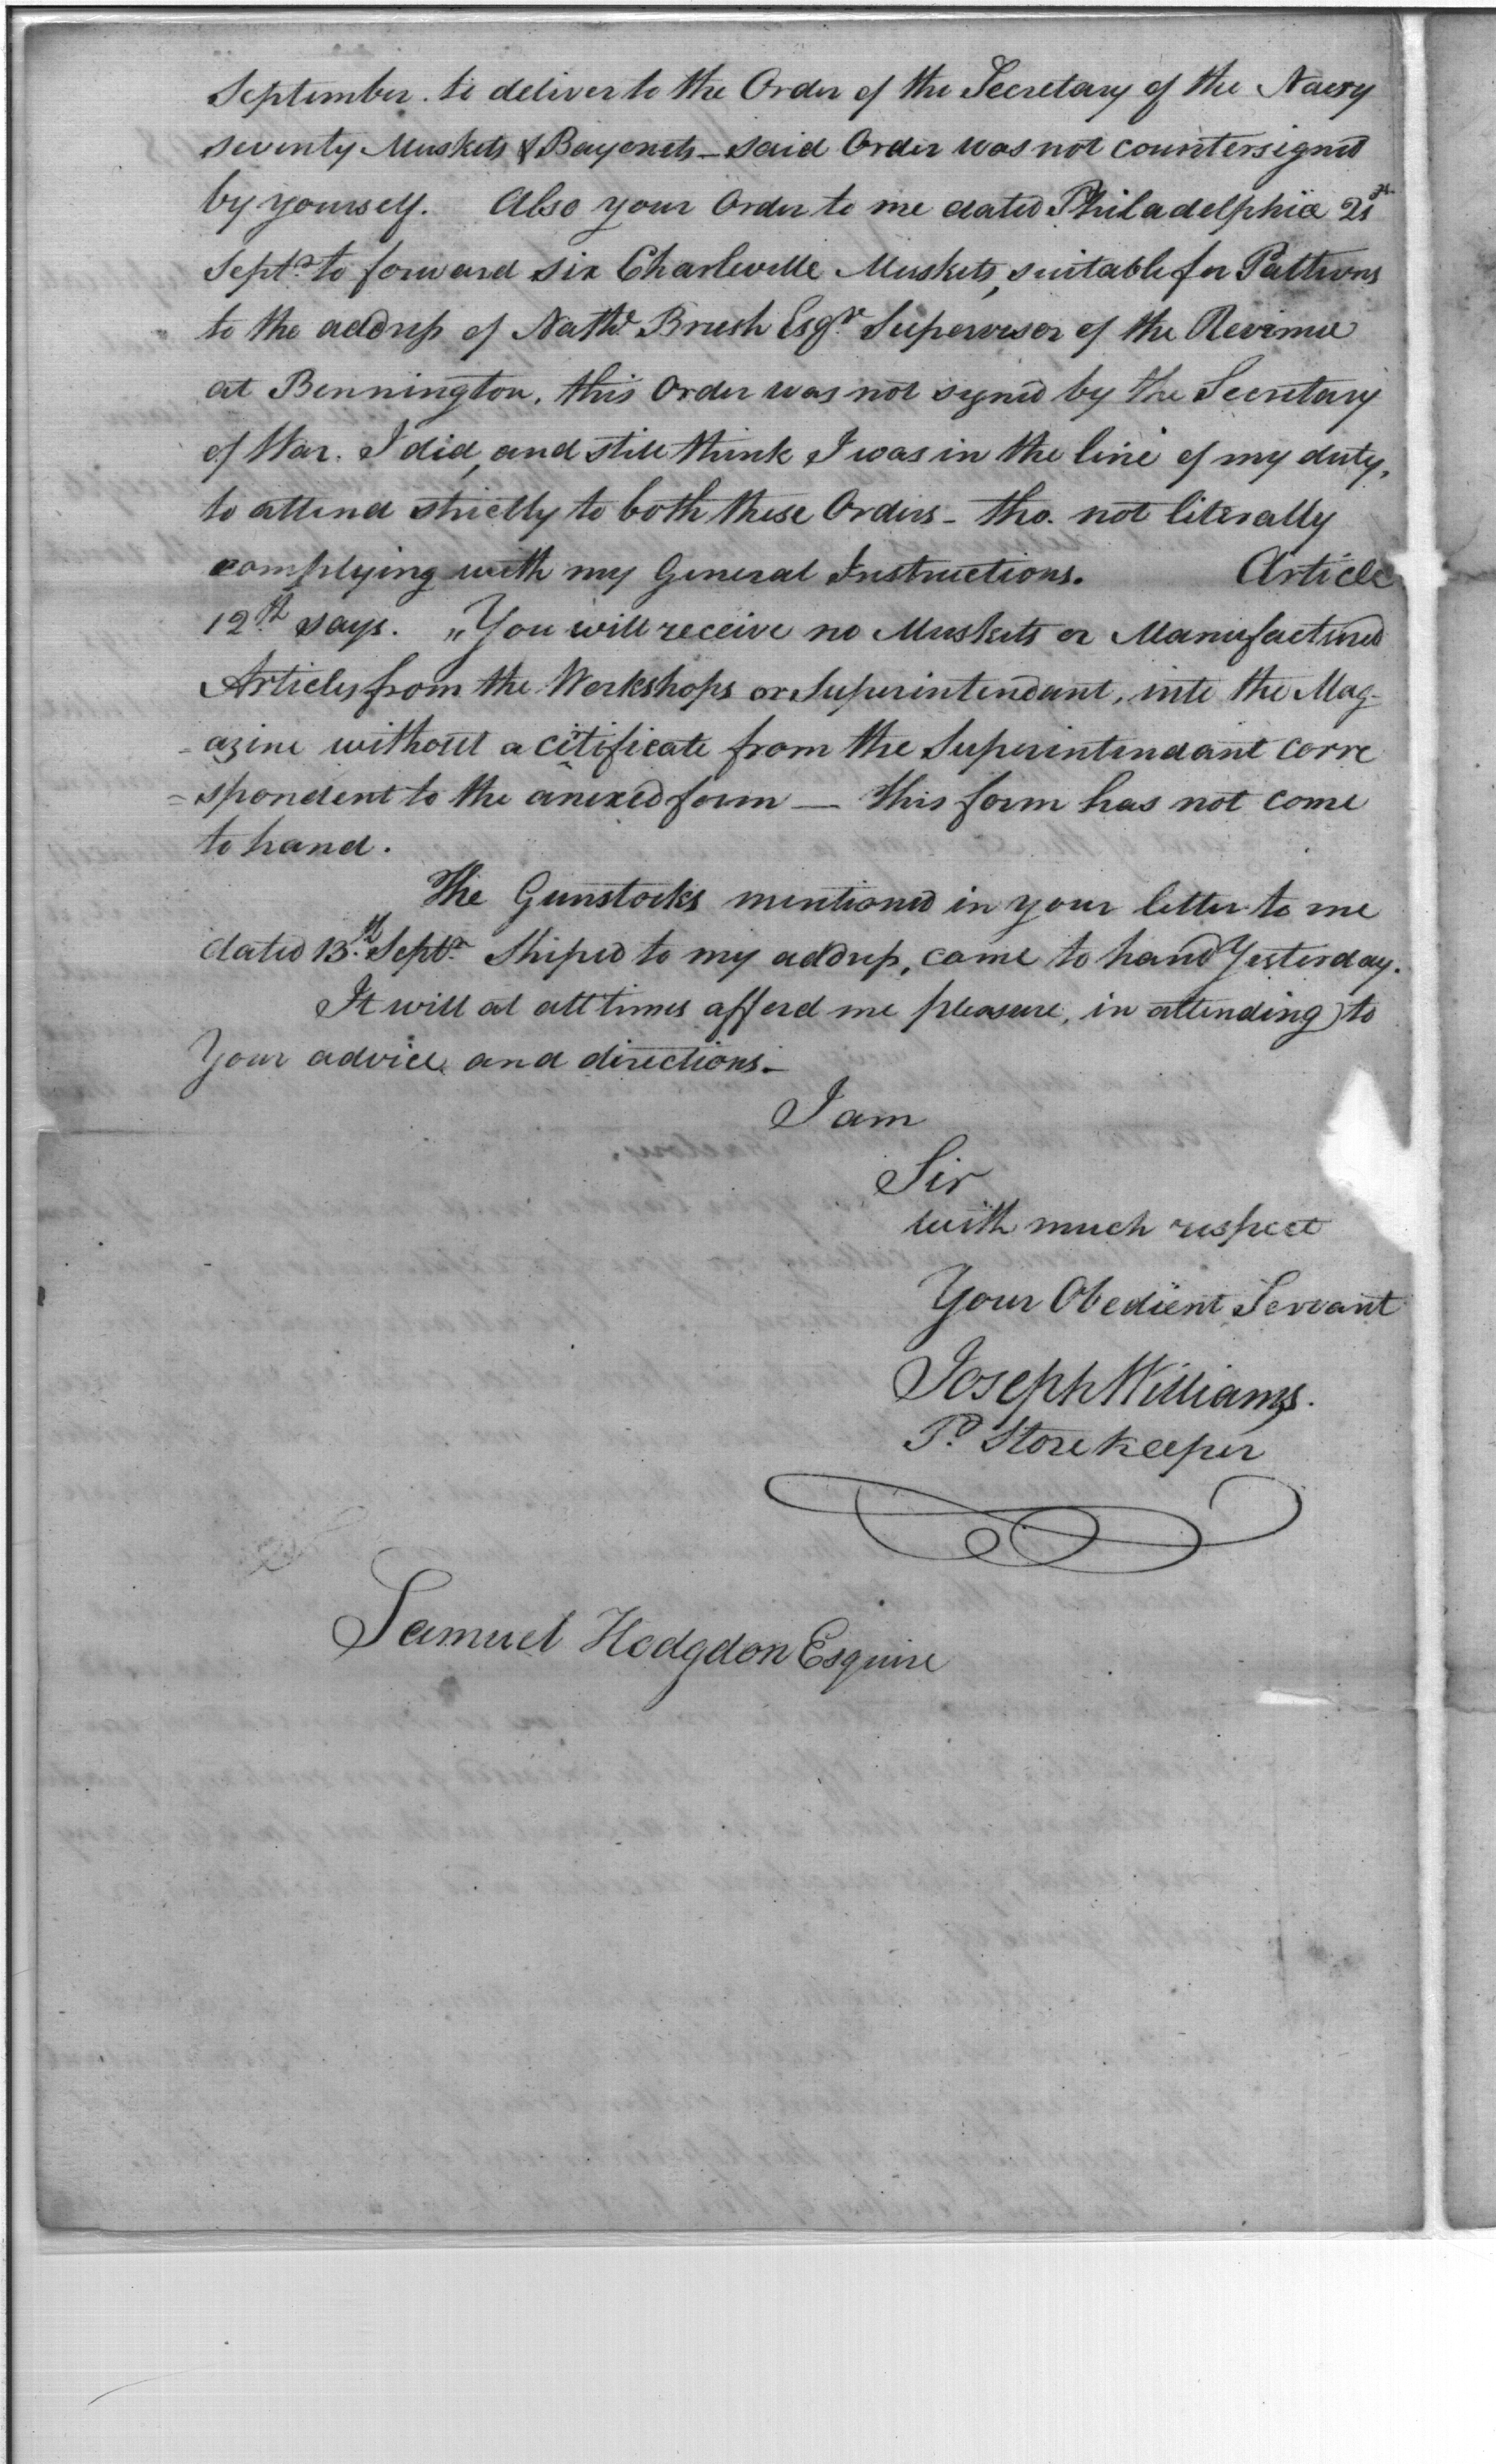 September. to deliver to the Order of the Secretary of the Navy
seventy Muskets & Bayonets _ said Order was not countersigned
by yourself. Also your Order to me dated Philadelphia 21st
Septr. to forward six Charleville Muskets, suitable for Patterns
to the address of Nathl. Brush Esqr. Supervisor of the Revenue
at Bennington. this Order was not signed by the Secretary
of War. I did, and still think I was in the line of my duty,
to attend strictly to both these Orders _ tho. not literally
complying with my General Instructions. Article
12th says. „You will receive no Muskets or Manufactured
Articles from the Workshops or Superintendant, into the Mag-
=azine without a citificate from the Superintendant corre
=spondent to the anexed form — this form has not come
to hand.
The Gunstocks mentioned in your letter to me
dated 13th. Septr. Shiped to my address, came to hand Yesterday.
It will at all times afford me pleasure, in attending to
Your advice and directions._
I am
Sir
with much respect
Your Obedient Servant
Joseph Williams.
P. Storekeeper
Samuel Hodgdon Esquire